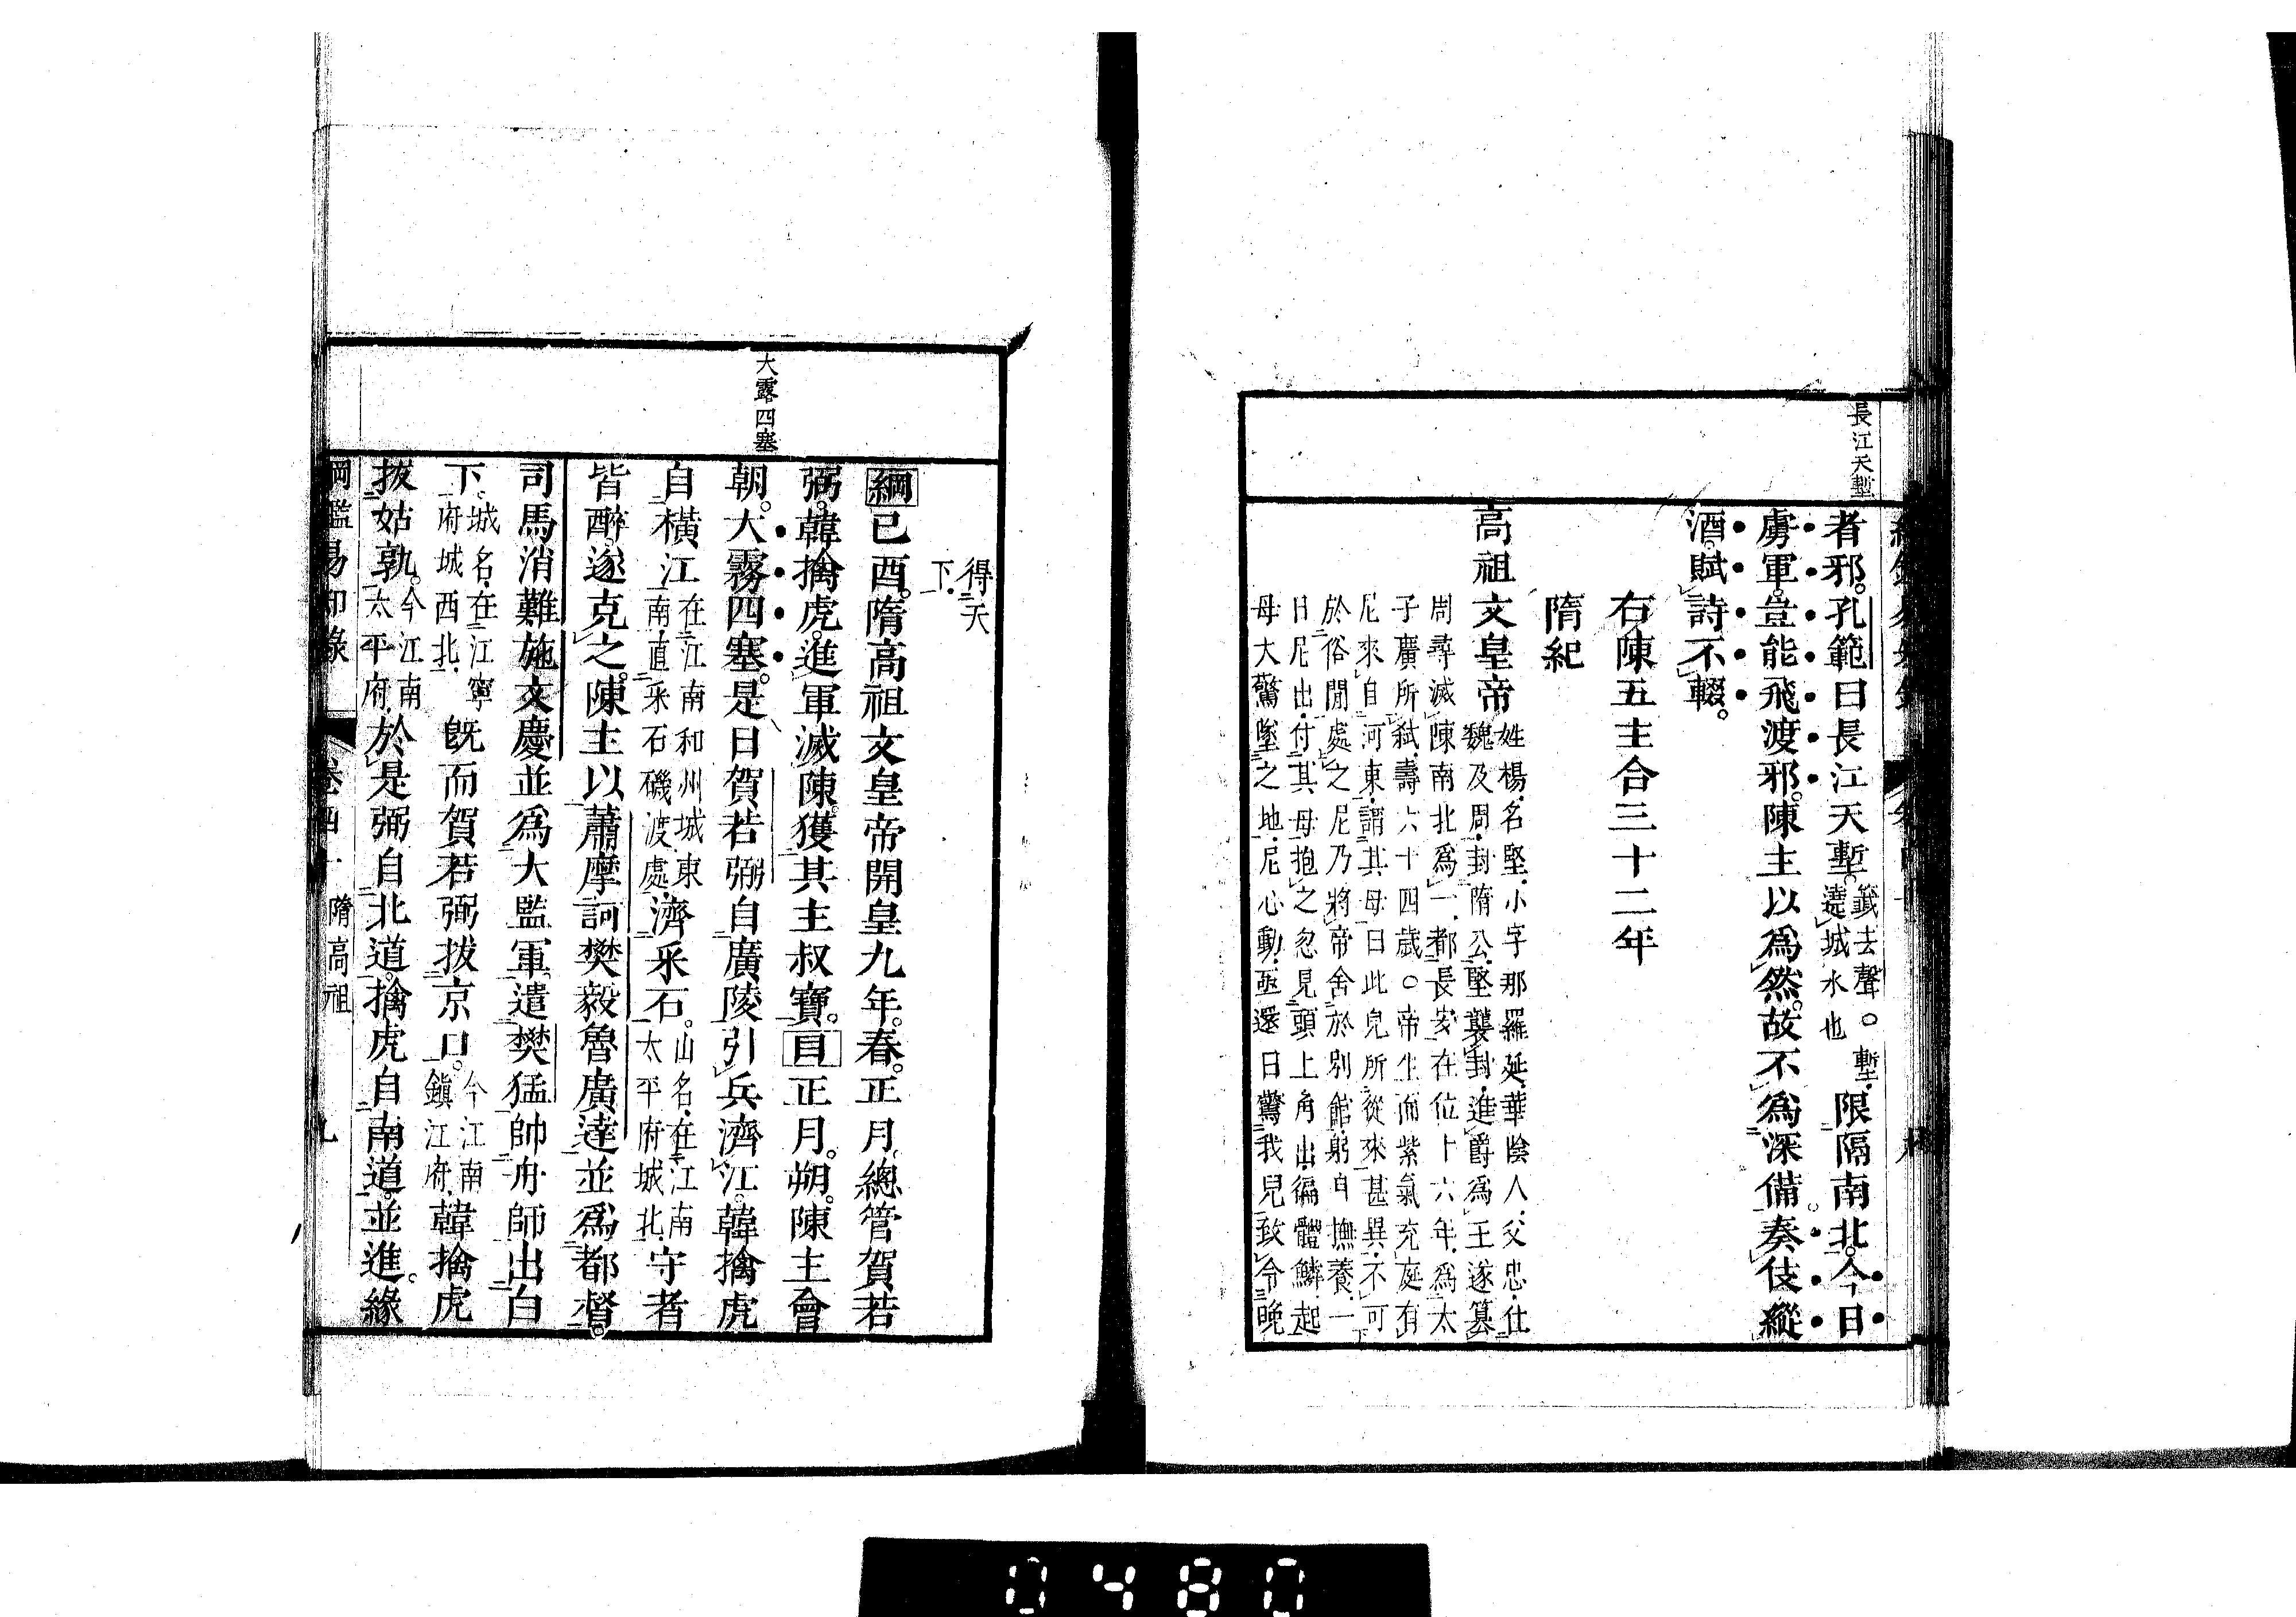 長江天塹
者邪。孔範曰長江天塹。籤去聲。○塹.遶城水也限隔南北。今日
虜軍。豈能飛渡邪。陳主以爲然。故不爲深備。奏伎縱
酒。賦詩不輟。
右陳五主合三十二年
隋紀
高祖文皇帝
姓楊.名堅.小字那羅延.華陰人.父忠.仕
魏及周.封隋公.堅襲封.進爵爲王遂篡
周尋滅陳南北爲一.都長安在位十六年.爲太
子廣所弒.壽六十四歲○帝生而紫氣充庭有
尼來自河東.謂其母曰此兒所從來甚異.不可
於俗閒處之尼乃將帝舍於別館.躬自撫養.一
日尼出.付其母抱之忽見頭上角出.徧體鱗起
母大驚墜之地.尼心動.亟還日驚我兒致令晚
得天
下.
大霧四塞
綱已酉。隋高祖文皇帝開皇九年。春。正月總管賀若
弼。韓擒虎。進軍滅陳。獲其主叔寶。目正月。朔。陳主會
朝。大霧四塞。是日賀若弼自廣陵引兵濟江。韓擒虎
自橫江在江南和州城東南直釆石磯渡處.濟釆石。山名.在江南太平府城北.守者
皆醉。遂克之。陳主以蕭摩訶樊毅魯廣達並爲都督。
司馬消難施文慶並爲大監軍。遣樊猛帥舟師出白
下。城名.在江寧府城西北.旣而賀若弼拔京口。今江南鎭江府.韓擒虎
拔姑孰。今江南太平府.於是弼自北道。擒虎自南道。並進。緣
綱鑑易知錄 卷四十 隋高祖 九